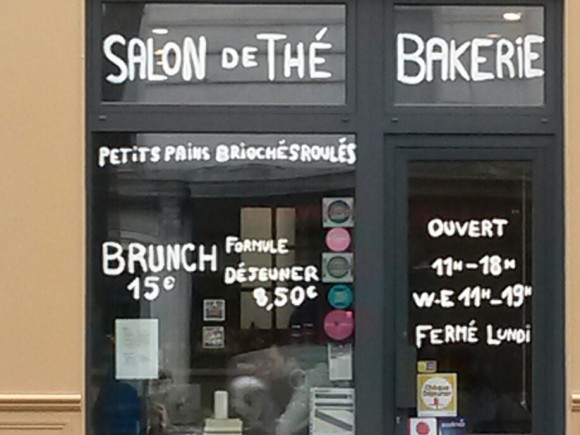 SALON DE THÉ
BAKERIE
PETITS PAINS BRIOCHÉS ROULÉS
BRUNCH
15€
FORMULE
DÉJEUNER
8,50€
OUVERT
11H-18H
W-E 11H-19H
FERMÉ LUNDI
Chèque
Déjeuner